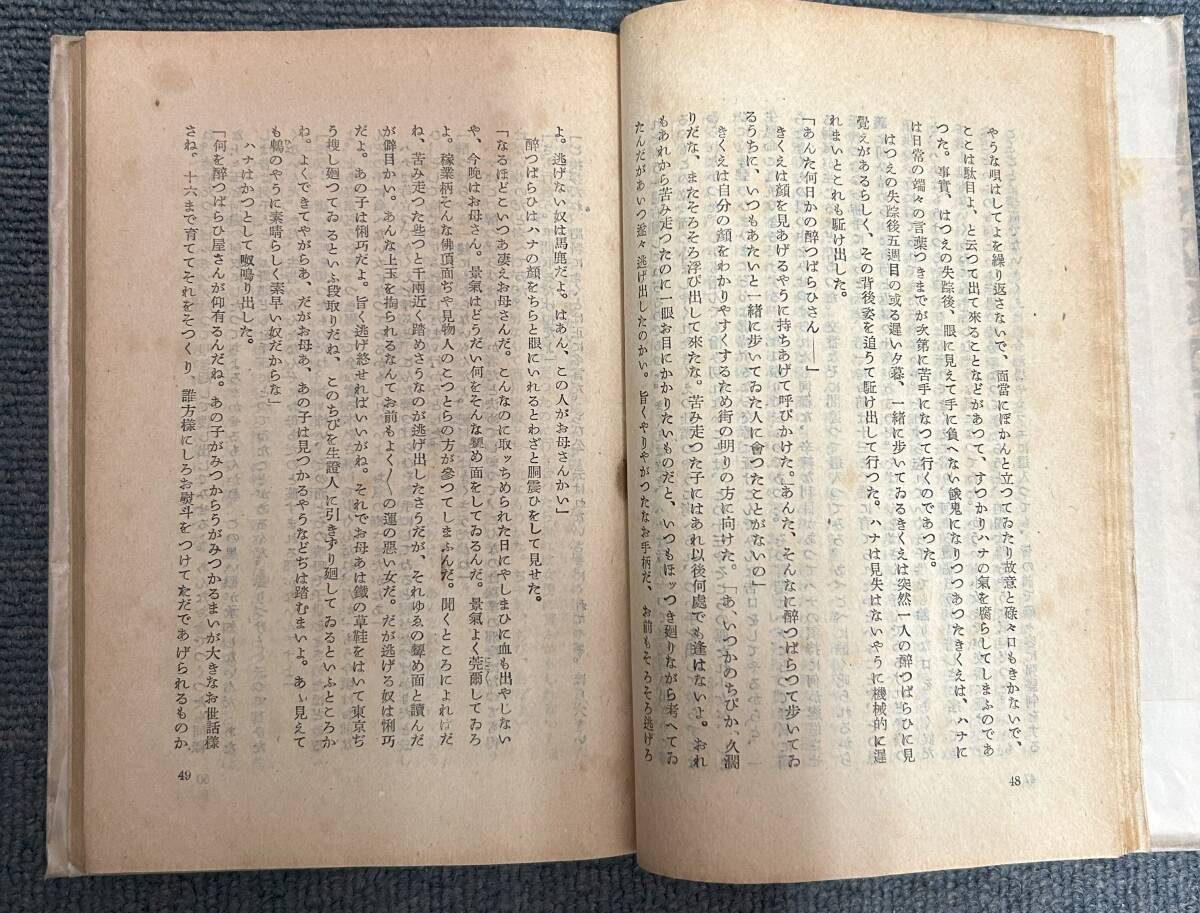 やうな唄はしてよを繰り返さないで、面當にぽかんと立つてゐたり故意と碌々口もきかないで、
ここは駄目よ、と云つて出て來ることなどがあつて、すつかりハナの氣を腐らしてしまふのであ
つた。事實、はつえの失踪後、眼に見えて手に負へない餓鬼になりつつあつたきくえは、ハナに
は日常の端々の言葉つきまでが次第に苦手になつて行くのであつた。
はつえの失踪後五週目の或る遲い夕暮、一緒に歩いてゐるきくえは突然一人の醉つぱらひに見
覺えがあるらしく、その背後姿を追うて駈け出して行つた。ハナは見失はないやうに機械的に遲
れまいとこれも駈け出した。
「あんた何日かの醉つぱらひさん――」
きくえは顏を見あげるやうに持ちあげて呼びかけた。「あんた、そんなに醉つぱらつて歩いてゐ
るうちに、いつもあたいと一緒に歩いてゐた人に會つたことがないの」
きくえは自分の顏をわかりやすくするため街の明りの方に向けた。「あ、いつかのちびか、久濶
りだな、またそろそろ浮び出して來たな。苦み走つた子にはあれ以後何處でも逢はないよ。おれ
もあれから苦み走つたのに一眼お目にかかりたいものだと、いつもほッつき廻りながら考へてゐ
たんだがあいつ遂々逃げ出したのかい。旨くやりやがつたなお手柄だ、お前もそろそろ逃げろ
48
よ。逃げない奴は馬鹿だよ。はあん、この人がお母さんかい」
醉つぱらひはハナの顏をちらと眼にいれるとわざと胴震ひをして見せた。
「なるほどこいつあ凄えお母さんだ。こんなのに取ッちめられた日にやしまひに血も出やしない
や、今晩はお母さん。景氣はどうだい何をそんな顰め面をしてゐるんだ。景氣よく莞爾してゐろ
よ。稼業柄そんな佛頂面ぢや見物人のこつとらの方が參つてしまふんだ。聞くところによればだ
ね、苦み走つた些つと千兩近く踏めさうなのが逃げ出したさうだが、それゆゑの顰め面と讀んだ
が僻目かい。あんな上玉を掏られるなんてお前もよく〳〵の運の惡い女だ。だが逃げる奴は悧巧
だよ。あの子は悧巧だよ。旨く逃げ終せればいいがね。それでお母あは鐵の草鞋をはいて東京ぢ
う搜し廻つてゐるといふ段取りだね、このちびを生證人に引きずり廻してゐるといふところか
ね。よくできてやがらあ、だがお母あ、あの子は見つかるやうなどぢは踏むまいよ。あゝ見えて
も鵯のやうに素晴らしく素早い奴だからな」
ハナはかつとして呶鳴り出した。
「何を醉つぱらひ屋さんが仰有るんだね。あの子がみつからうがみつかるまいが大きなお世話樣
さね。十六まで育ててそれをそつくり、誰方樣にしろお熨斗をつけてただであげられるものか
49